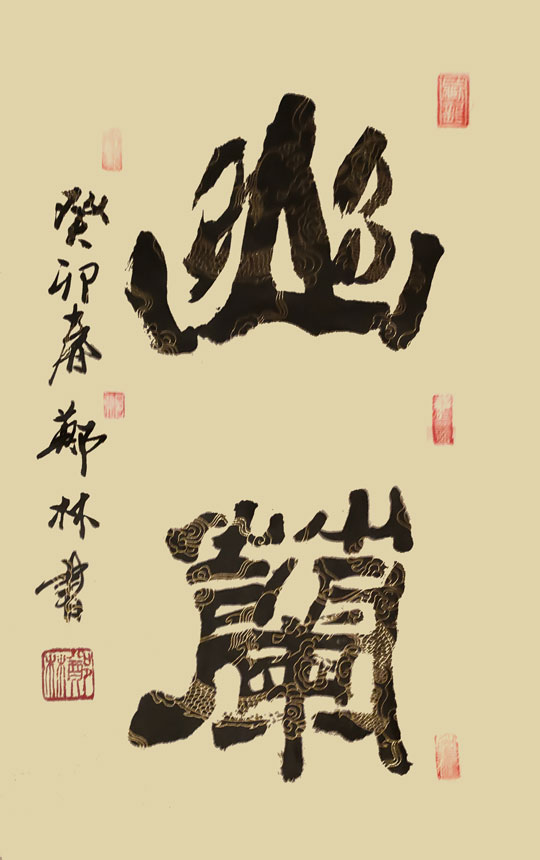 幽蘭
癸卯春鄭林書
鄭林